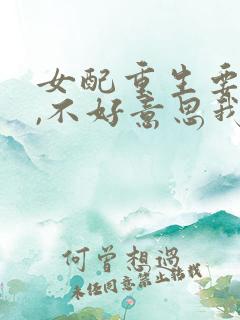 女配重生要
,不好意思我
何曾想過
未经同意禁止转载